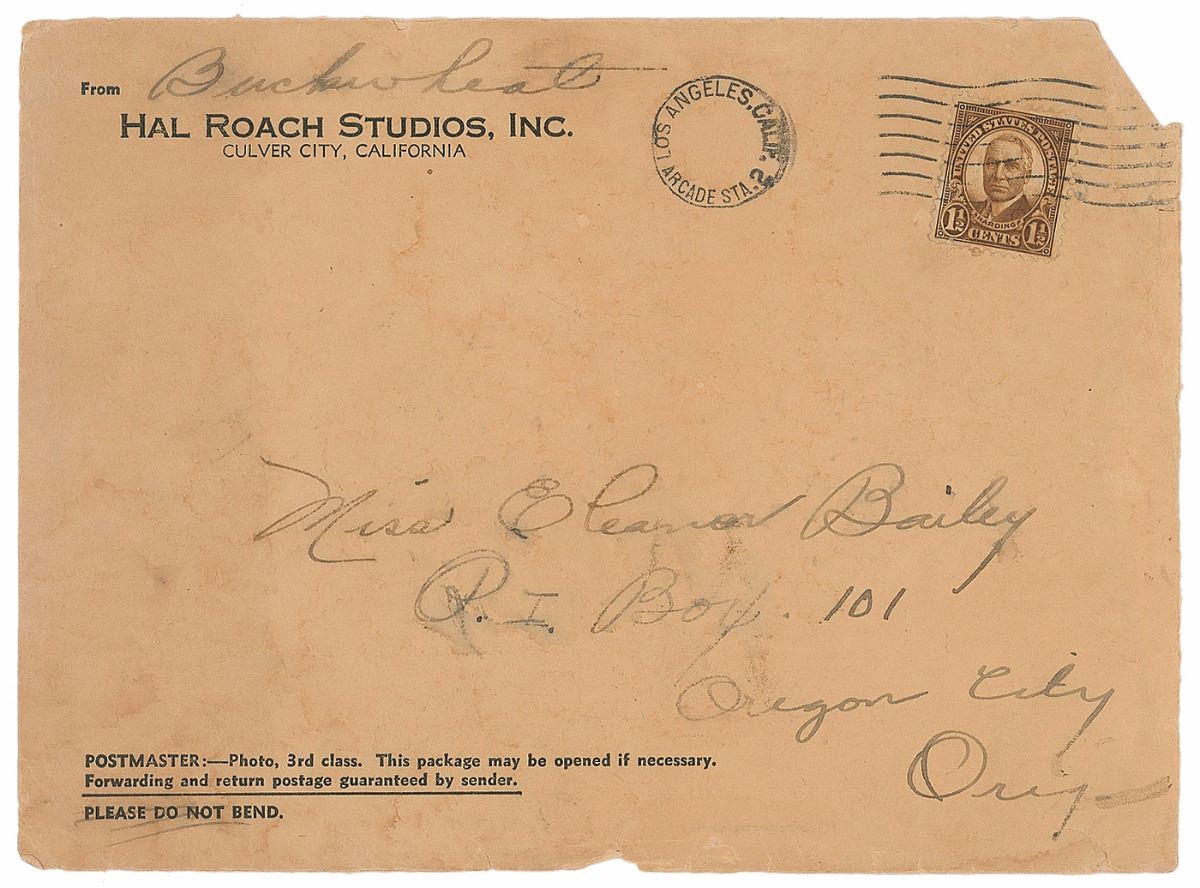 From Buckwheat
HAL ROACH STUDIOS, INC.
CULVER CITY, CALIFORNIA
LOS ANGELES, CALIF. 2
ARCADE STA.
UNITED STATES POSTAGE
HARDING
1½ CENTS 1½
Miss Eleanor Bailey
R. I. Box. 101
Oregon City
Oreg
POSTMASTER:—Photo, 3rd class. This package may be opened if necessary.
Forwarding and return postage guaranteed by sender.
PLEASE DO NOT BEND.